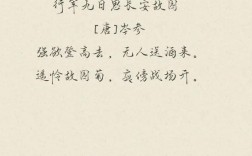 行军九日思长安故园
[唐]岑参
强欲登高去，无人送酒来。
遥怜故园菊，应傍战场开。